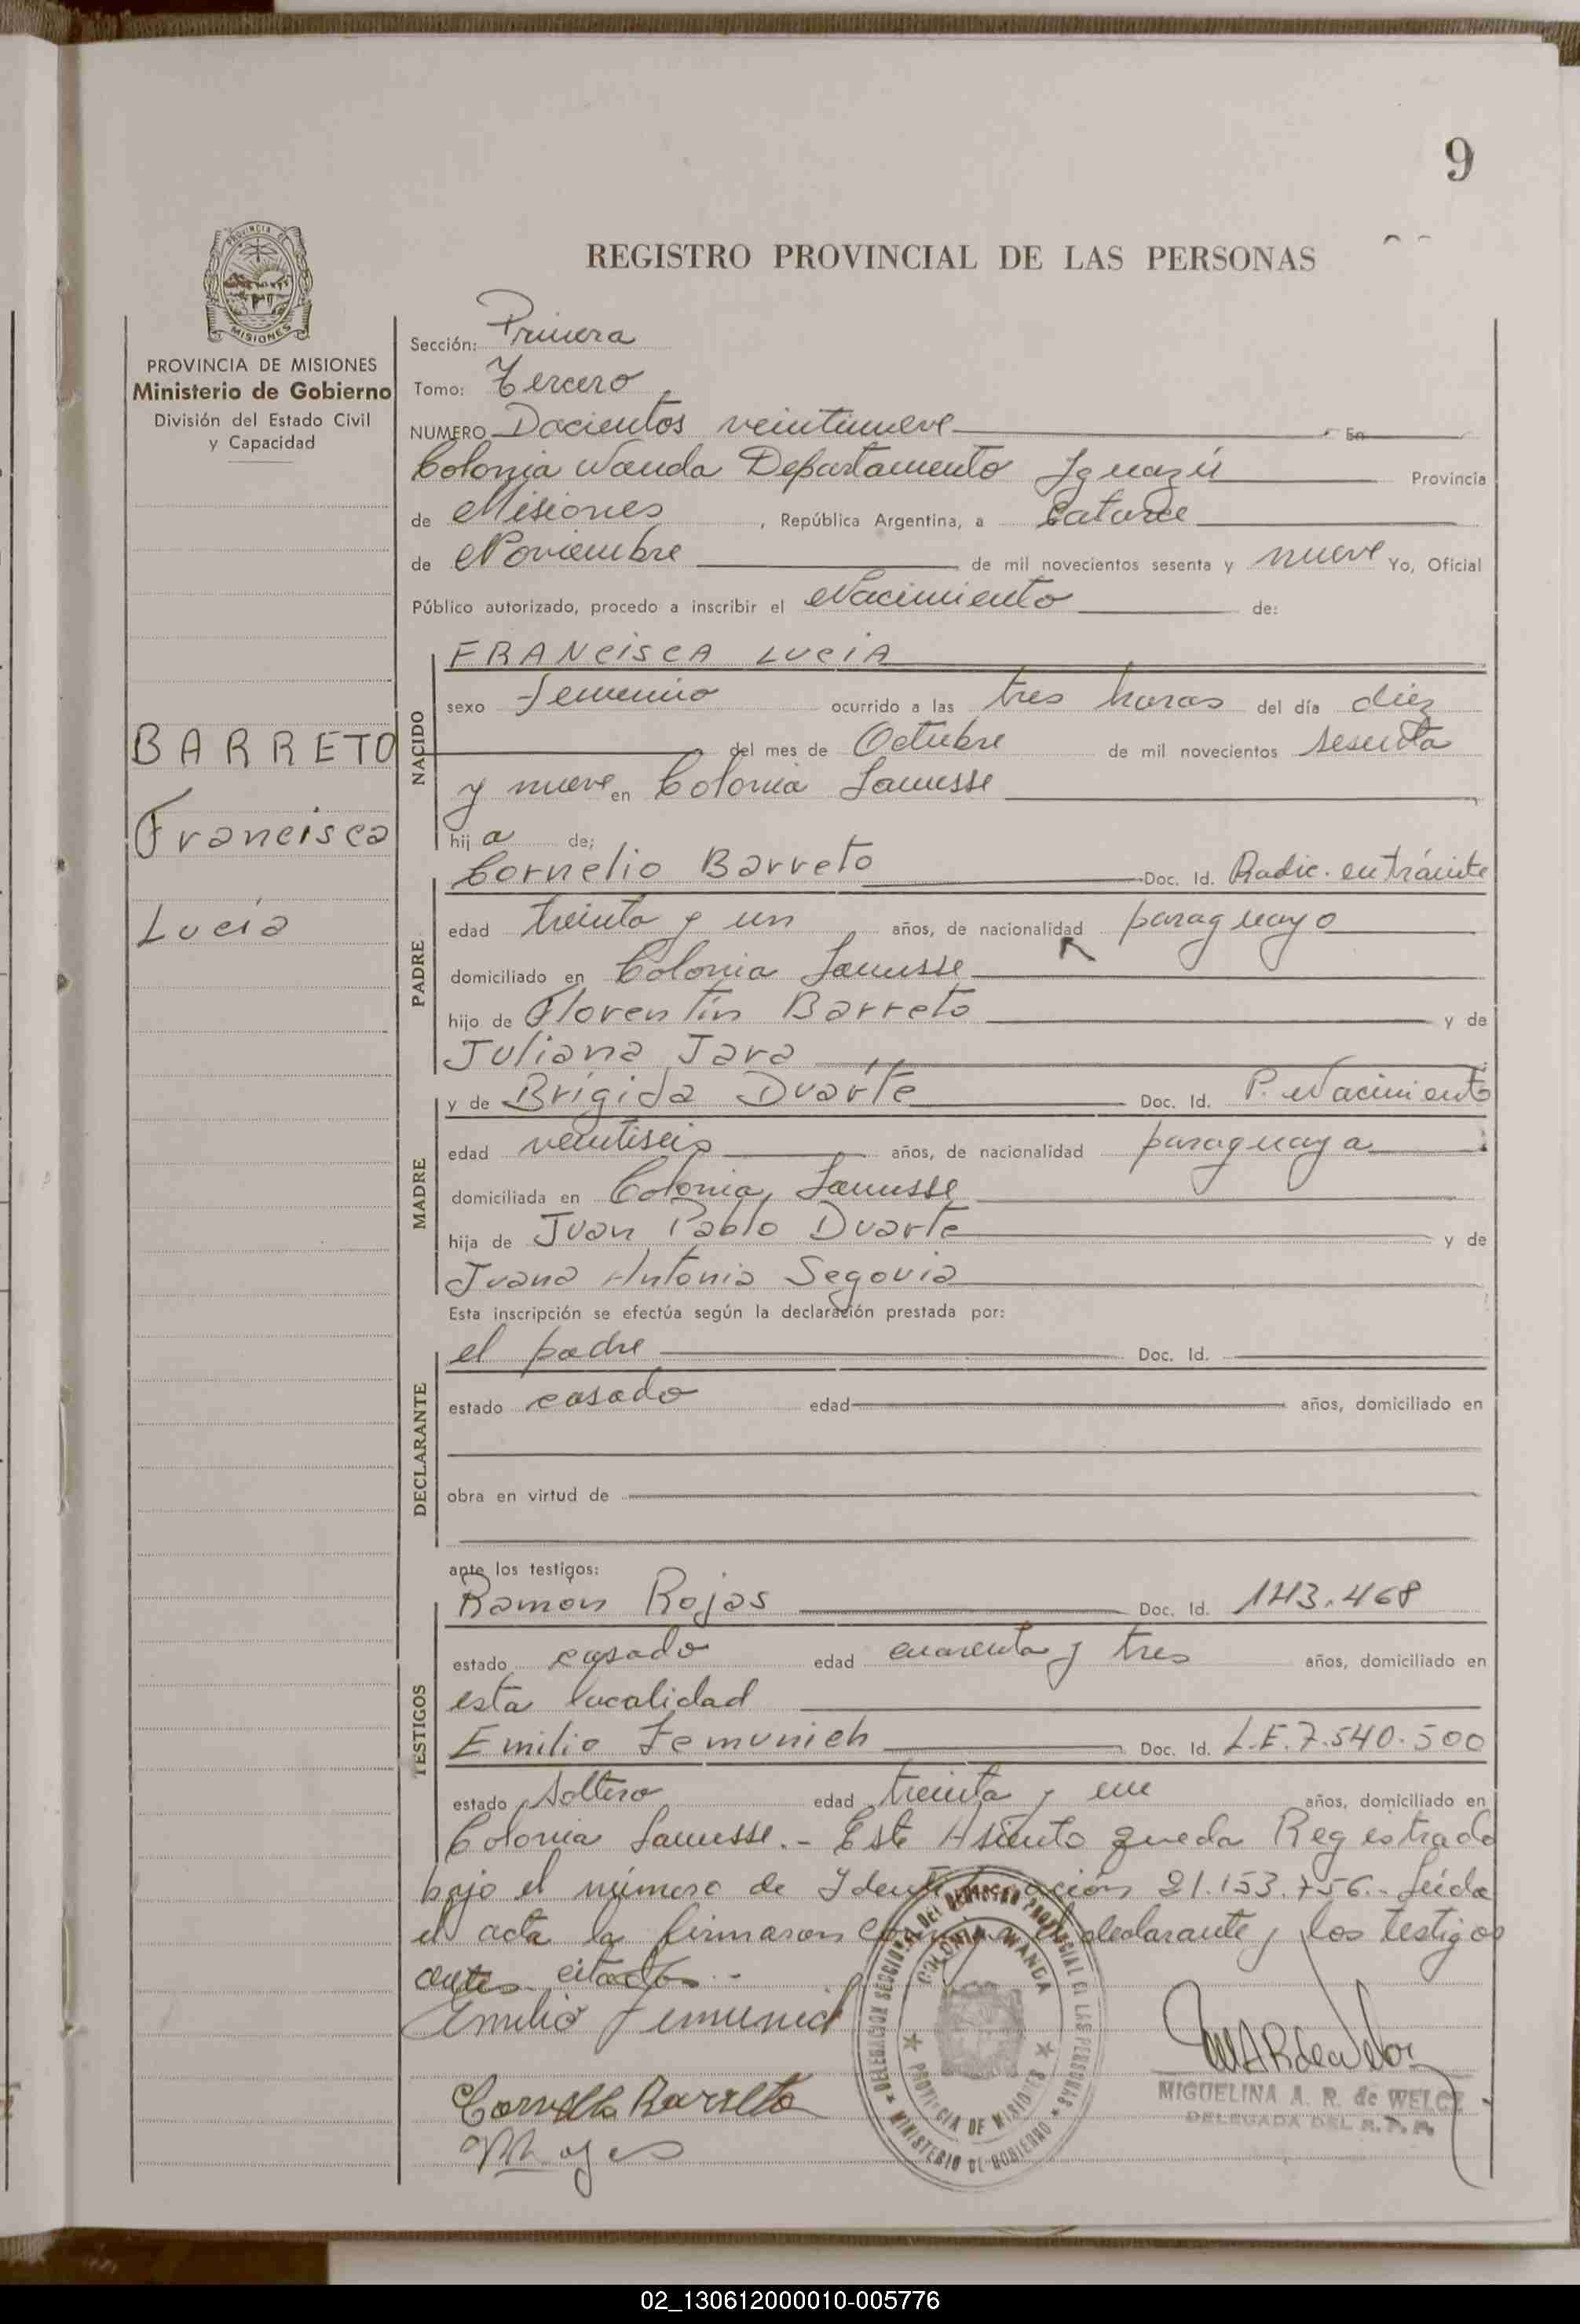 9
REGISTRO PROVINCIAL DE LAS PERSONAS
PROVINCIA DE
MISIONES
PROVINCIA DE MISIONES
Ministerio de Gobierno
División del Estado Civil
y Capacidad
BARRETO
Francisca
Lucia
Sección: Primera
Tomo: Tercero
NUMERO Docientos veintinueve En
Colonia Wanda Departamento Iguazú Provincia
de Misiones, República Argentina, a Catorce
de Noviembre de mil novecientos sesenta y nueve Yo, Oficial
Público autorizado, procedo a inscribir el Nacimiento de:
NACIDO
FRANCISCA LUCIA
sexo femenino ocurrido a las tres horas del día diez
del mes de Octubre de mil novecientos sesenta
y nueve en Colonia Lanusse
hija de;
PADRE
Cornelio Barreto Doc. Id. Radic. en trámite
edad treinta y un años, de nacionalidad paraguayo
domiciliado en Colonia Lanusse
hijo de Florentín Barreto y de
Juliana Jara
MADRE
y de Brígida Duarte Doc. Id. P. Nacimiento
edad veintiseis años, de nacionalidad paraguaya
domiciliada en Colonia Lanusse
hija de Juan Pablo Duarte y de
Juana Antonia Segovia
Esta inscripción se efectúa según la declaración prestada por:
DECLARANTE
el padre Doc. Id.
estado casado edad años, domiciliado en
obra en virtud de
ante los testigos:
TESTIGOS
Ramón Rojas Doc. Id. 143.468
estado casado edad cuarenta y tres años, domiciliado en
esta localidad
Emilio Doc. Id. L.E. 7.540.500
estado soltero edad treinta y un años, domiciliado en
Colonia Lanusse.- Este Asiento queda Registrado
bajo el número de Identificación 21.153.756.- Leída
el acta la firmaron el declarante y los testigos
antes citados.-
Emilio
Cornelio Barreto
DELEGACION SECCIONAL DEL REGISTRO PROVINCIAL DE LAS PERSONAS
COLONIA WANDA
PROVINCIA DE MISIONES
MINISTERIO DE GOBIERNO
MIGUELINA A. R. de WELCZ
DELEGADA DEL R.P.P.
02_130612000010-005776